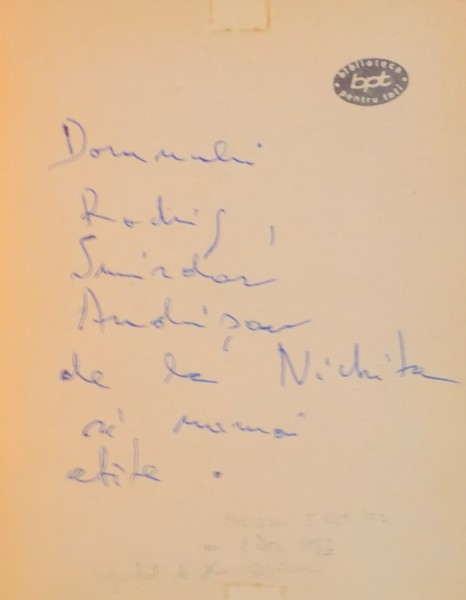 biblioteca
bpt
pentru toți
Domnului
Rodrig,
Andrișan
de la Nichita
și numai
atîta.